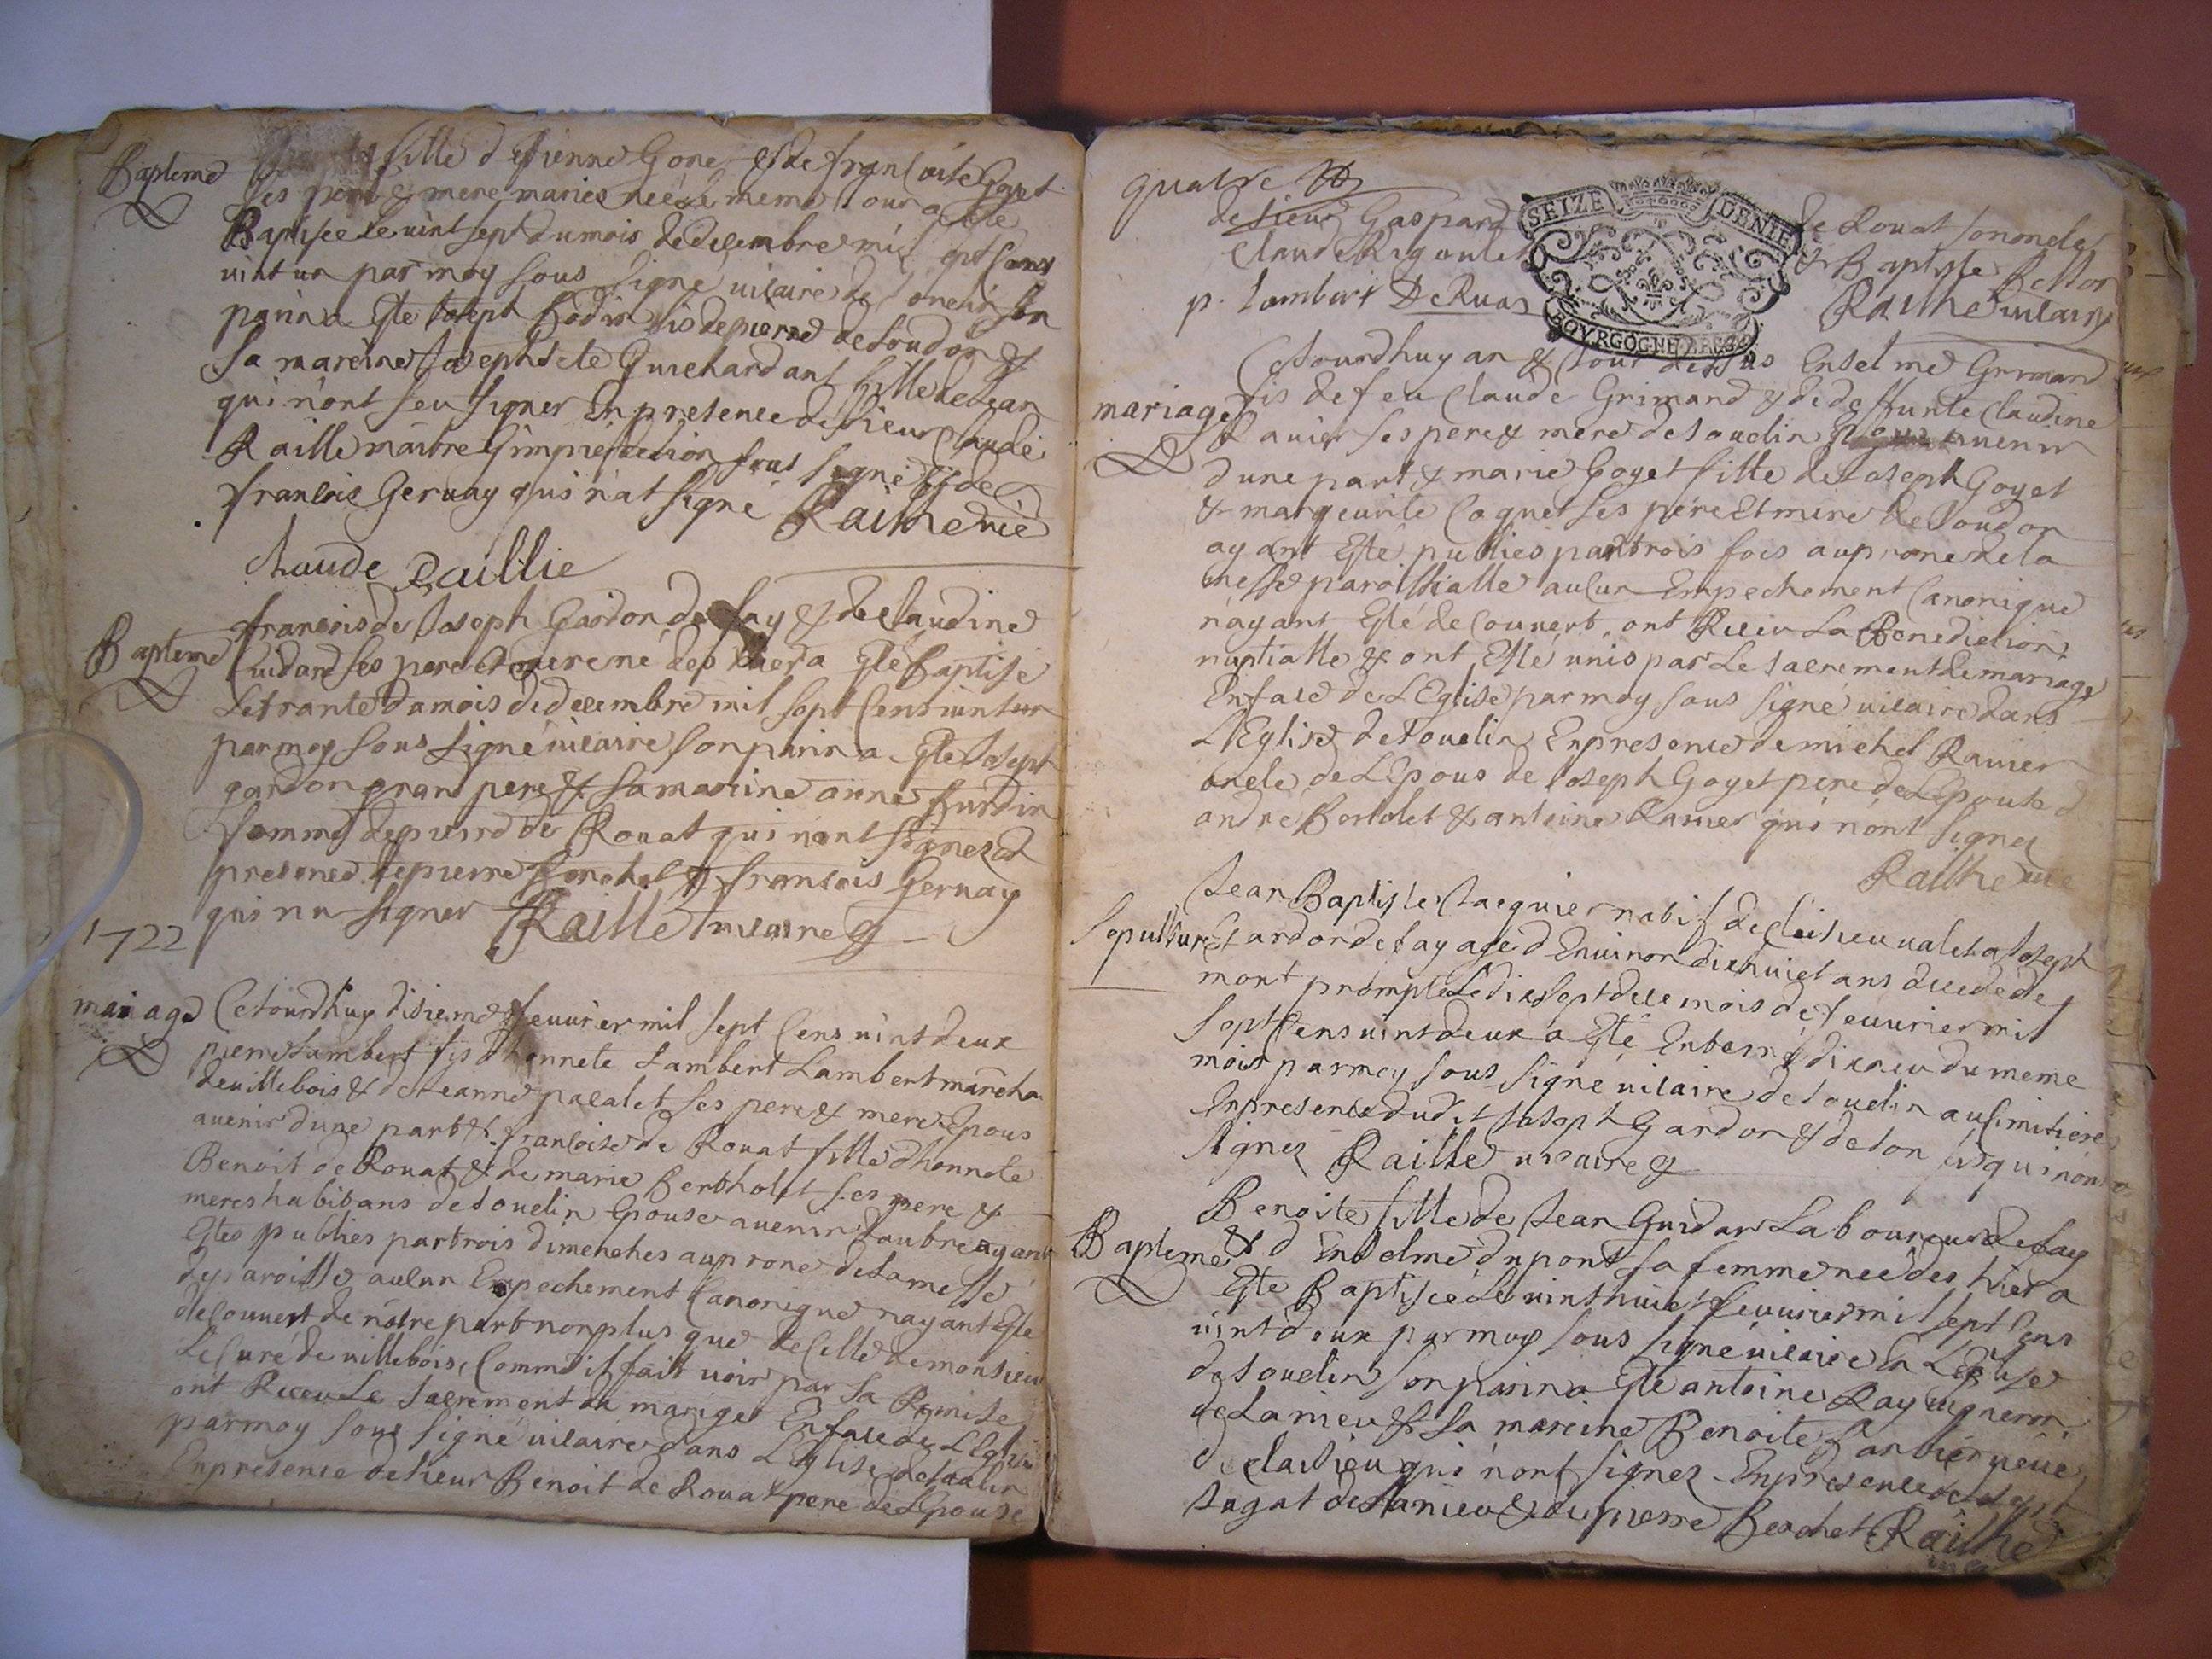 Bapteme
fille d estienne Gone & de francoise Goyet
ses pere & mere maries née le meme iour a esté
Baptisee le vint sept du mois de decembre mil sept cens
vint un par moy sous signé vicaire de son
parin a esté Joseph Bodin fis de pierre de soudon &
sa mareine Josephte Guichardant fille de Jean
qui n'ont seu signer En presence de sieur Claude
Raille maitre sous signé & de
francois Geruay qui n'at signé Railhe vic
Claude Raillie
Bapteme
francois de Joseph Gardon de fay & de claudine
Guidard ses pere et mere né des hier a esté Baptisé
Le trante du mois de decembre mil sept Cens vint un
par moy sous signé vicaire son parin a esté Joseph
gardon grand pere & sa mareine anne Burdin
femme de pierre de Rouat qui n'ont signez
presence de pierre & francois Geruay
qui n'a signer Raillé vicaire
1722
mariage
Ce Jourdhuy disieme feuurier mil sept Cens vint deux
pierre Lambert fis d'honnete Lambert Lambert marcha
de villebois & de Jeanne pacalet ses pere & mere Epous
auenir dune part & francoise de Rouat fille dhonnete
Benoit de Rouat & de marie Bertholet ses pere &
meres habitans de souclin Epouse auenir daubre ayant
Estes publies par trois dimenches au prone de la messe
de paroisse aulun Empechement Canonique nayant Esté
decouuert de nôtre part non plus que de Celle de monsieur
Le Curé de villebois, Comme il fait voir par sa Remise
ont Receu Le sacrement du mariges En face de L'Eglise
par moy sous signé vicaire dans L'Eglise de soulin
En presence de sieur Benoit de Rouat pere de L'Epouse
quatre
de sieur Gaspard de Rouat son oncle
Claude Rigoulet & Baptiste Bellon
p. Lambert DeRuas Railhe vicaire
SEIZE DENIE
BOVRGOGNE BRESSE
mariage
Ce Jourdhuy an & Jour dessus Enselme Grimand
fis de feu Claude Grimand & de deffunte Claudine
Rauier ses pere & mere de souclin auenir
dune part & marie Goyet fille de Joseph Goyet
& margeurite Coquet ses père Et mère de soudon
ayant Esté publies par trois fois au prone de la
messe paroissialle aulun Empechement Canonique
n'ayant Esté decouuert, ont Receu La Benediction
nuptialle & ont Esté unis par Le sacrement de mariage
En face de L'Eglise par moy sous signé vicaire dans
L'Eglise de souclin En presence de michel Rauier
oncle de L'Epous de Joseph Goyet pere de L'Epouse d
andre Bertolet & antoine Rauier qui n'ont signez
Railhe vic
Sepulture
Jean Baptiste Jacquier natif de valet a Joseph
Gardon de fay agé d Enuiron dixhuict ans decedé de
mort prompte Le dix sept de ce mois de feuurier mil
sept Cens vint deux a Esté Enterré du meme
mois par moy sous signé vicaire de souclin au simitiere
En presence dudit Joseph Gardon & de son fis qui n'ont
signez Raille vicaire
Bapteme
Benoite fille de Jean Guidar Laboureur de fay
& d Enselme dupont sa femme née des hier a
Esté Baptisée Le vint huict feuurier mil sept Cens
vint deux par moy sous signé vicaire En L'Eglise
de souclin son parin a Esté antoine Ray vigneron
de Lanieu & sa mareine Benoite Barbier
qui n'ont signez En presence de
Jugat de Lanieu & de pierre Berchet Railhe